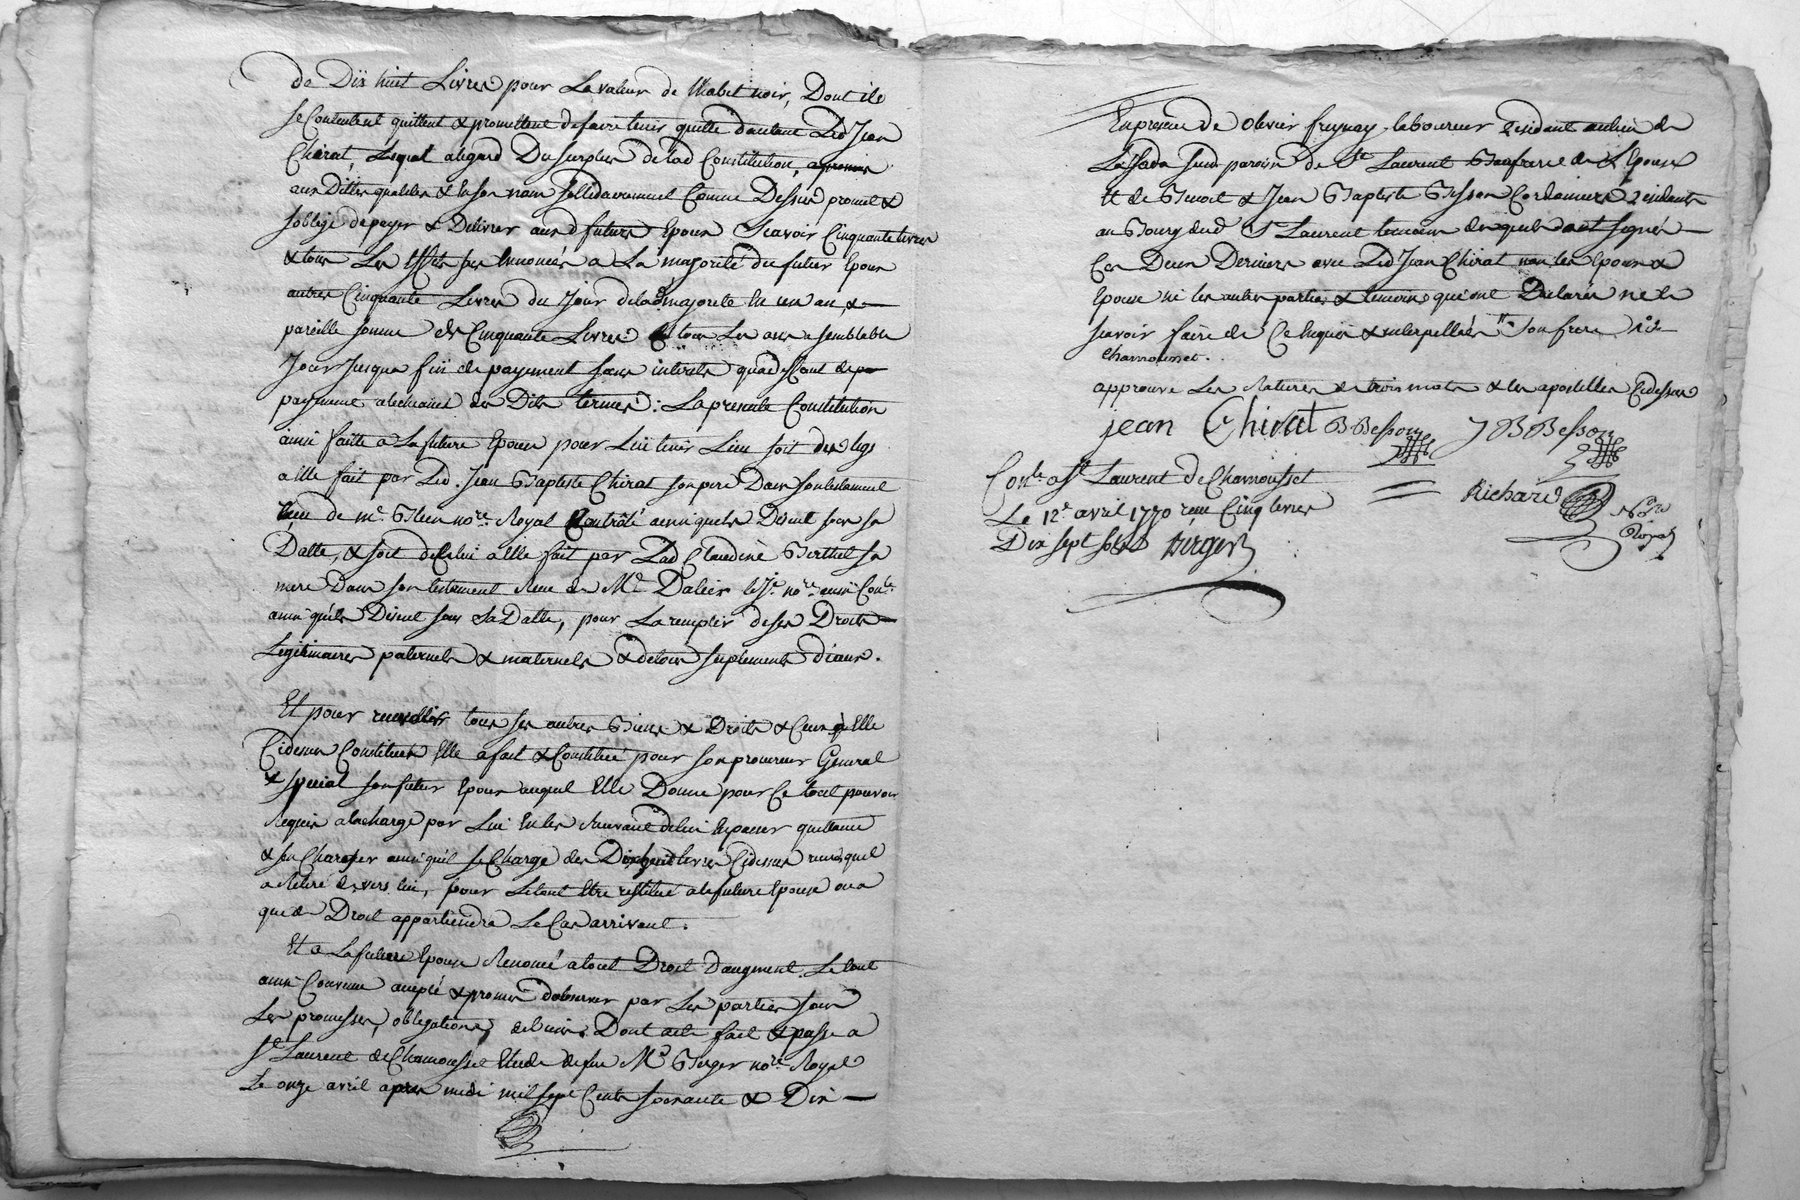 de Dix huit Livres pour La valeur de l'habit noir, Dont ils
se Contentent quittent & promettent de faire tenir quitte d'autant Led Jean
Chirat, Lequel a legard Du surplus de lad Constitution,
aux Dittes qualités & en son nom sollidairement Comme Dessus, promet &
s'oblige de payer & Delivrer aux d futurs Epoux Scavoir Cinquante livres
& tous Les Effets sus Enoncés a La majorité du futur Epoux
autres Cinquante Livres du Jour de lad majorité En un an, &
pareille somme de Cinquante Livres tous Les ans a semblable
Jour Jusqua fin de payement sans interets qua deffaut de
payement a lecheance des Dits termes: La presente Constitution
ainsi faitte a La future Epouse pour Lui tenir Lieu soit du legs
a Elle fait par Led. Jean Baptiste Chirat son pere Dans son testament
reçu de me. nore. Royal Controllé ainsi quils Disent sous sa
Datte, & soit de Celui a Elle fait par Lad Claudine Berthet sa
mere Dans son testament Reçu de Me Dalier nore. aussi Conlé.
ainsi quils Disent sous sa Datte, pour La remplir de ses Droits
Legitimaires paternels & maternels & de tous suplements d'iceux.
Et pour recueillir tous ses autres Biens & Droits & Ceux qu'Elle
Cidessus Constitués Elle a fait & Constitué pour son procureur General
& special son futur Epoux auquel Elle Donne pour Ce tout pouvoir
Requis a la charge par Lui En les Recevant d'en passer quittance
& s'en Charger ainsi quil se Charge des Dix huit livres Cidessus
a Retiré devers lui, pour Le tout Etre restitué a la future Epouse ou a
qui de Droit appartiendra Le Cas arrivant.
Et a La future Epouse Renoncé a tout Droit D'augment. Le tout
ainsi Convenu accepté & promis d'observer par Les parties sous
Les promesses, obligations, Dont acte fait & passé a
St Laurent de Chamousset Etude de feu Me Berger nore Royal
Le onze avril apres midi mil sept Cents soixante & Dix
En presence de Olivier laboureur Residant au lieu de
paroisse de St. Laurent de L'Epoux
Et de Benoit & Jean Baptiste Besson Cordonniers Residants
au Bourg dud St Laurent temoins desquels ont signés
Ces Deux Derniers avec Led Jean Chirat non les Epoux &
Epouse ni les autres parties & temoins qui ont Declarés ne le
scavoir faire de Ce Enquis & interpellés Son frere
Chamousset.
approuve Les Ratures de trois mots & les apostilles Cidessus
jean Chirat B Besson J B Besson
Conlé a St. Laurent de Chamousset Richard nore
Le 12e avril 1770 reçu Cinq livres Royal
Dix sept sols Berger